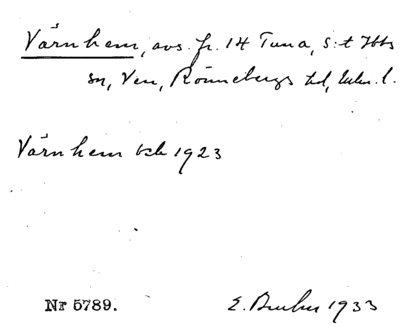 Värnhem, avs. fr. 14 Tuna, S:t Ibbs
sn, Ven, Rönnebergs hd, Malm. l.
Värnhem kck 1923
Nr 5789.
E. 1933